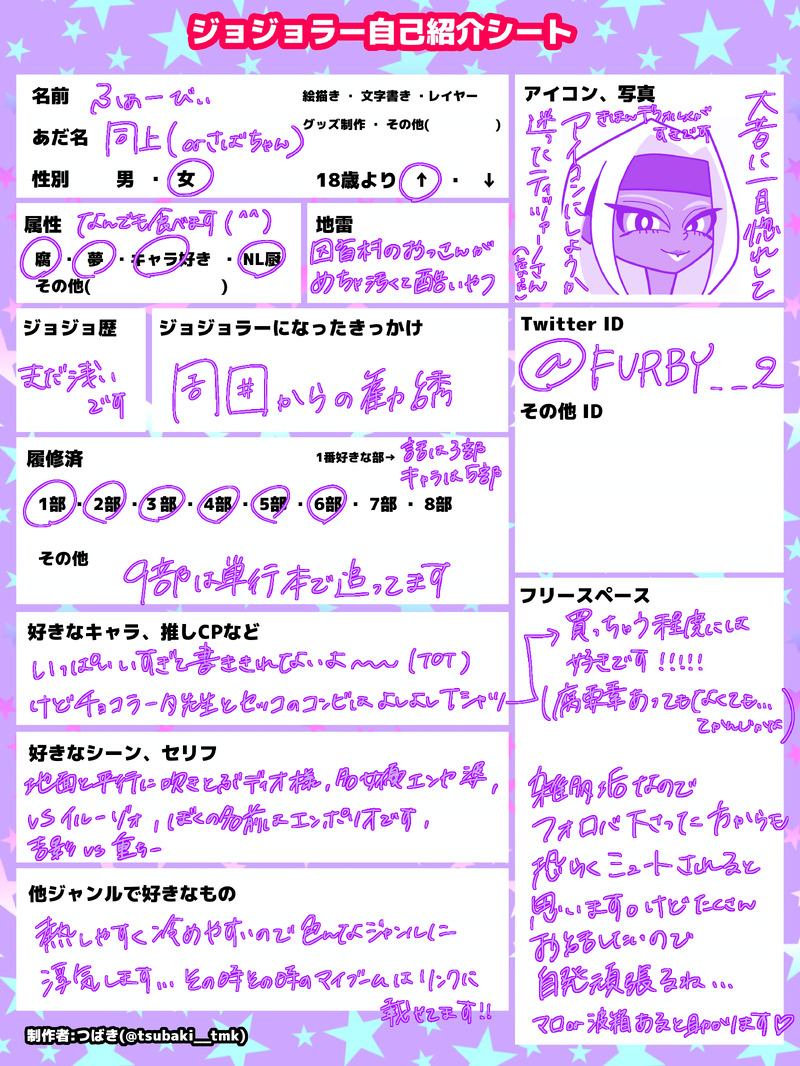 ジョジョラー自己紹介シート
名前 ふぁーびぃ
あだ名 同上(orさばちゃん)
性別 男 ・ 女
絵描き ・ 文字書き ・レイヤー
グッズ制作 ・ その他( )
18歳より ↑ ・ ↓
アイコン、写真
大昔に一目惚れして
迷ったティッツァーノさん
アイコンにしようか
きほんデフォルメが
すきです
属性 なんでも食べます(^^)
腐 ・ 夢 ・キャラ好き ・NL厨
その他( )
地雷
因習村のおっさんが
めちゃ汚くて酷いやつ
ジョジョ歴
まだ浅い
です
ジョジョラーになったきっかけ
周囲からの勧誘
Twitter ID
@FURBY__2
その他 ID
履修済
1番好きな部→ 話は3部
キャラは5部
1部 ・ 2部 ・ 3部 ・ 4部 ・ 5部 ・ 6部 ・ 7部 ・ 8部
その他
9部は単行本で追ってます
好きなキャラ、推しCPなど
いっぱいいすぎて書ききれないよ〜〜(TOT)
けどチョコラータ先生とセッコのコンビはよしよしTシャツ
フリースペース
買っちゃう程度には
好きです!!!!!
(腐要素あってもなくても...
雑多垢なので
フォロバ下さった方からも
恐らくミュートされると
思います。けどたくさん
お話したいので
自発頑張るね...
マロor波箱あると助かります♡
好きなシーン、セリフ
地面と平行に吹きとぶディオ様,女優エンヤ婆,
vsイルーゾォ,ぼくの名前はエンポリオです,
吉影vs重ちー
他ジャンルで好きなもの
熱しやすく冷めやすいので色んなジャンルに
浮気します... その時その時のマイブームはリンクに
載せてます!!
制作者:つばき(@tsubaki__tmk)